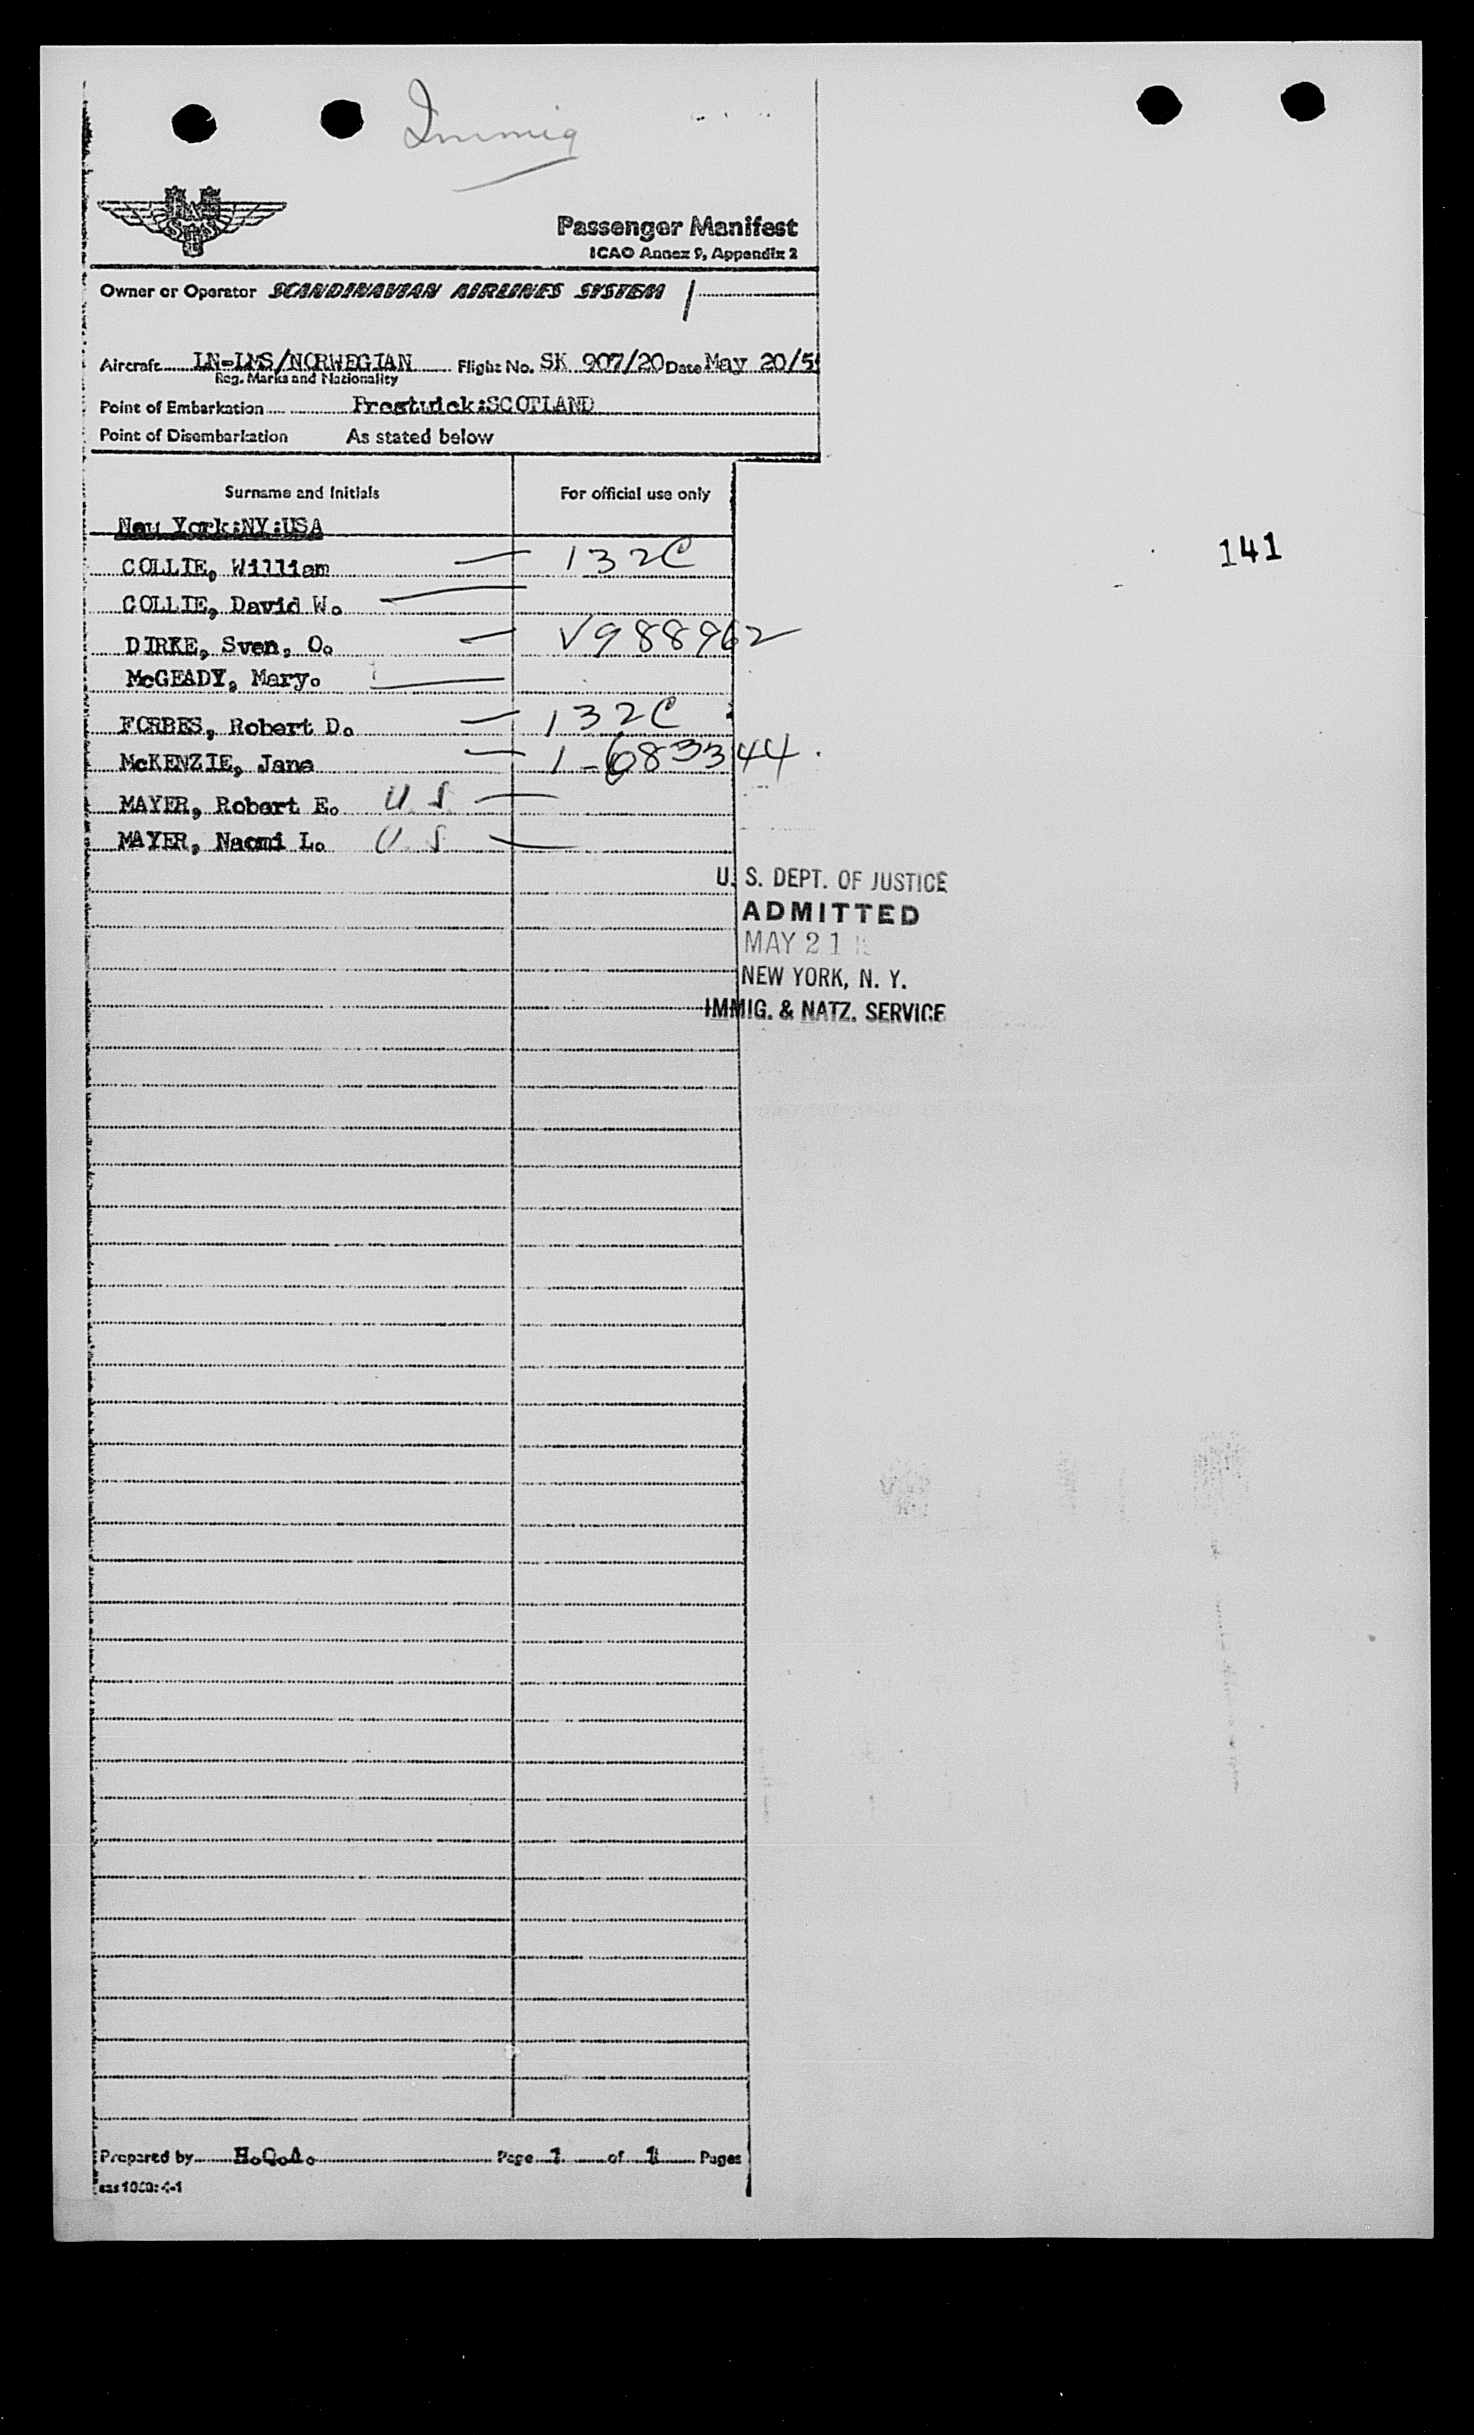 Immig
SAS
Passenger Manifest
ICAO Annex 9, Appendix 2
Owner or Operator SCANDINAVIAN AIRLINES SYSTEM
Aircraft LN-LMS/NORWEGIAN Flight No. SK 907/20 Date May 20/5
Reg. Marks and Nationality
Point of Embarkation Prestwick:SCOTLAND
Point of Disembarkation As stated below
Surname and Initials For official use only
New York:NY:USA
COLLIE, William — 132C
141
COLLIE, David W. —
DIRKE, Sven, O. — V988962
McGEADY, Mary. —
FORBES, Robert D. — 132C
McKENZIE, Jane — 1-683344
MAYER, Robert E. U.S. —
MAYER, Naomi L. U.S. —
U. S. DEPT. OF JUSTICE
ADMITTED
MAY 21
NEW YORK, N. Y.
IMMIG. & NATZ. SERVICE
Prepared by H.Q.A. Page 1 of 1 Pages